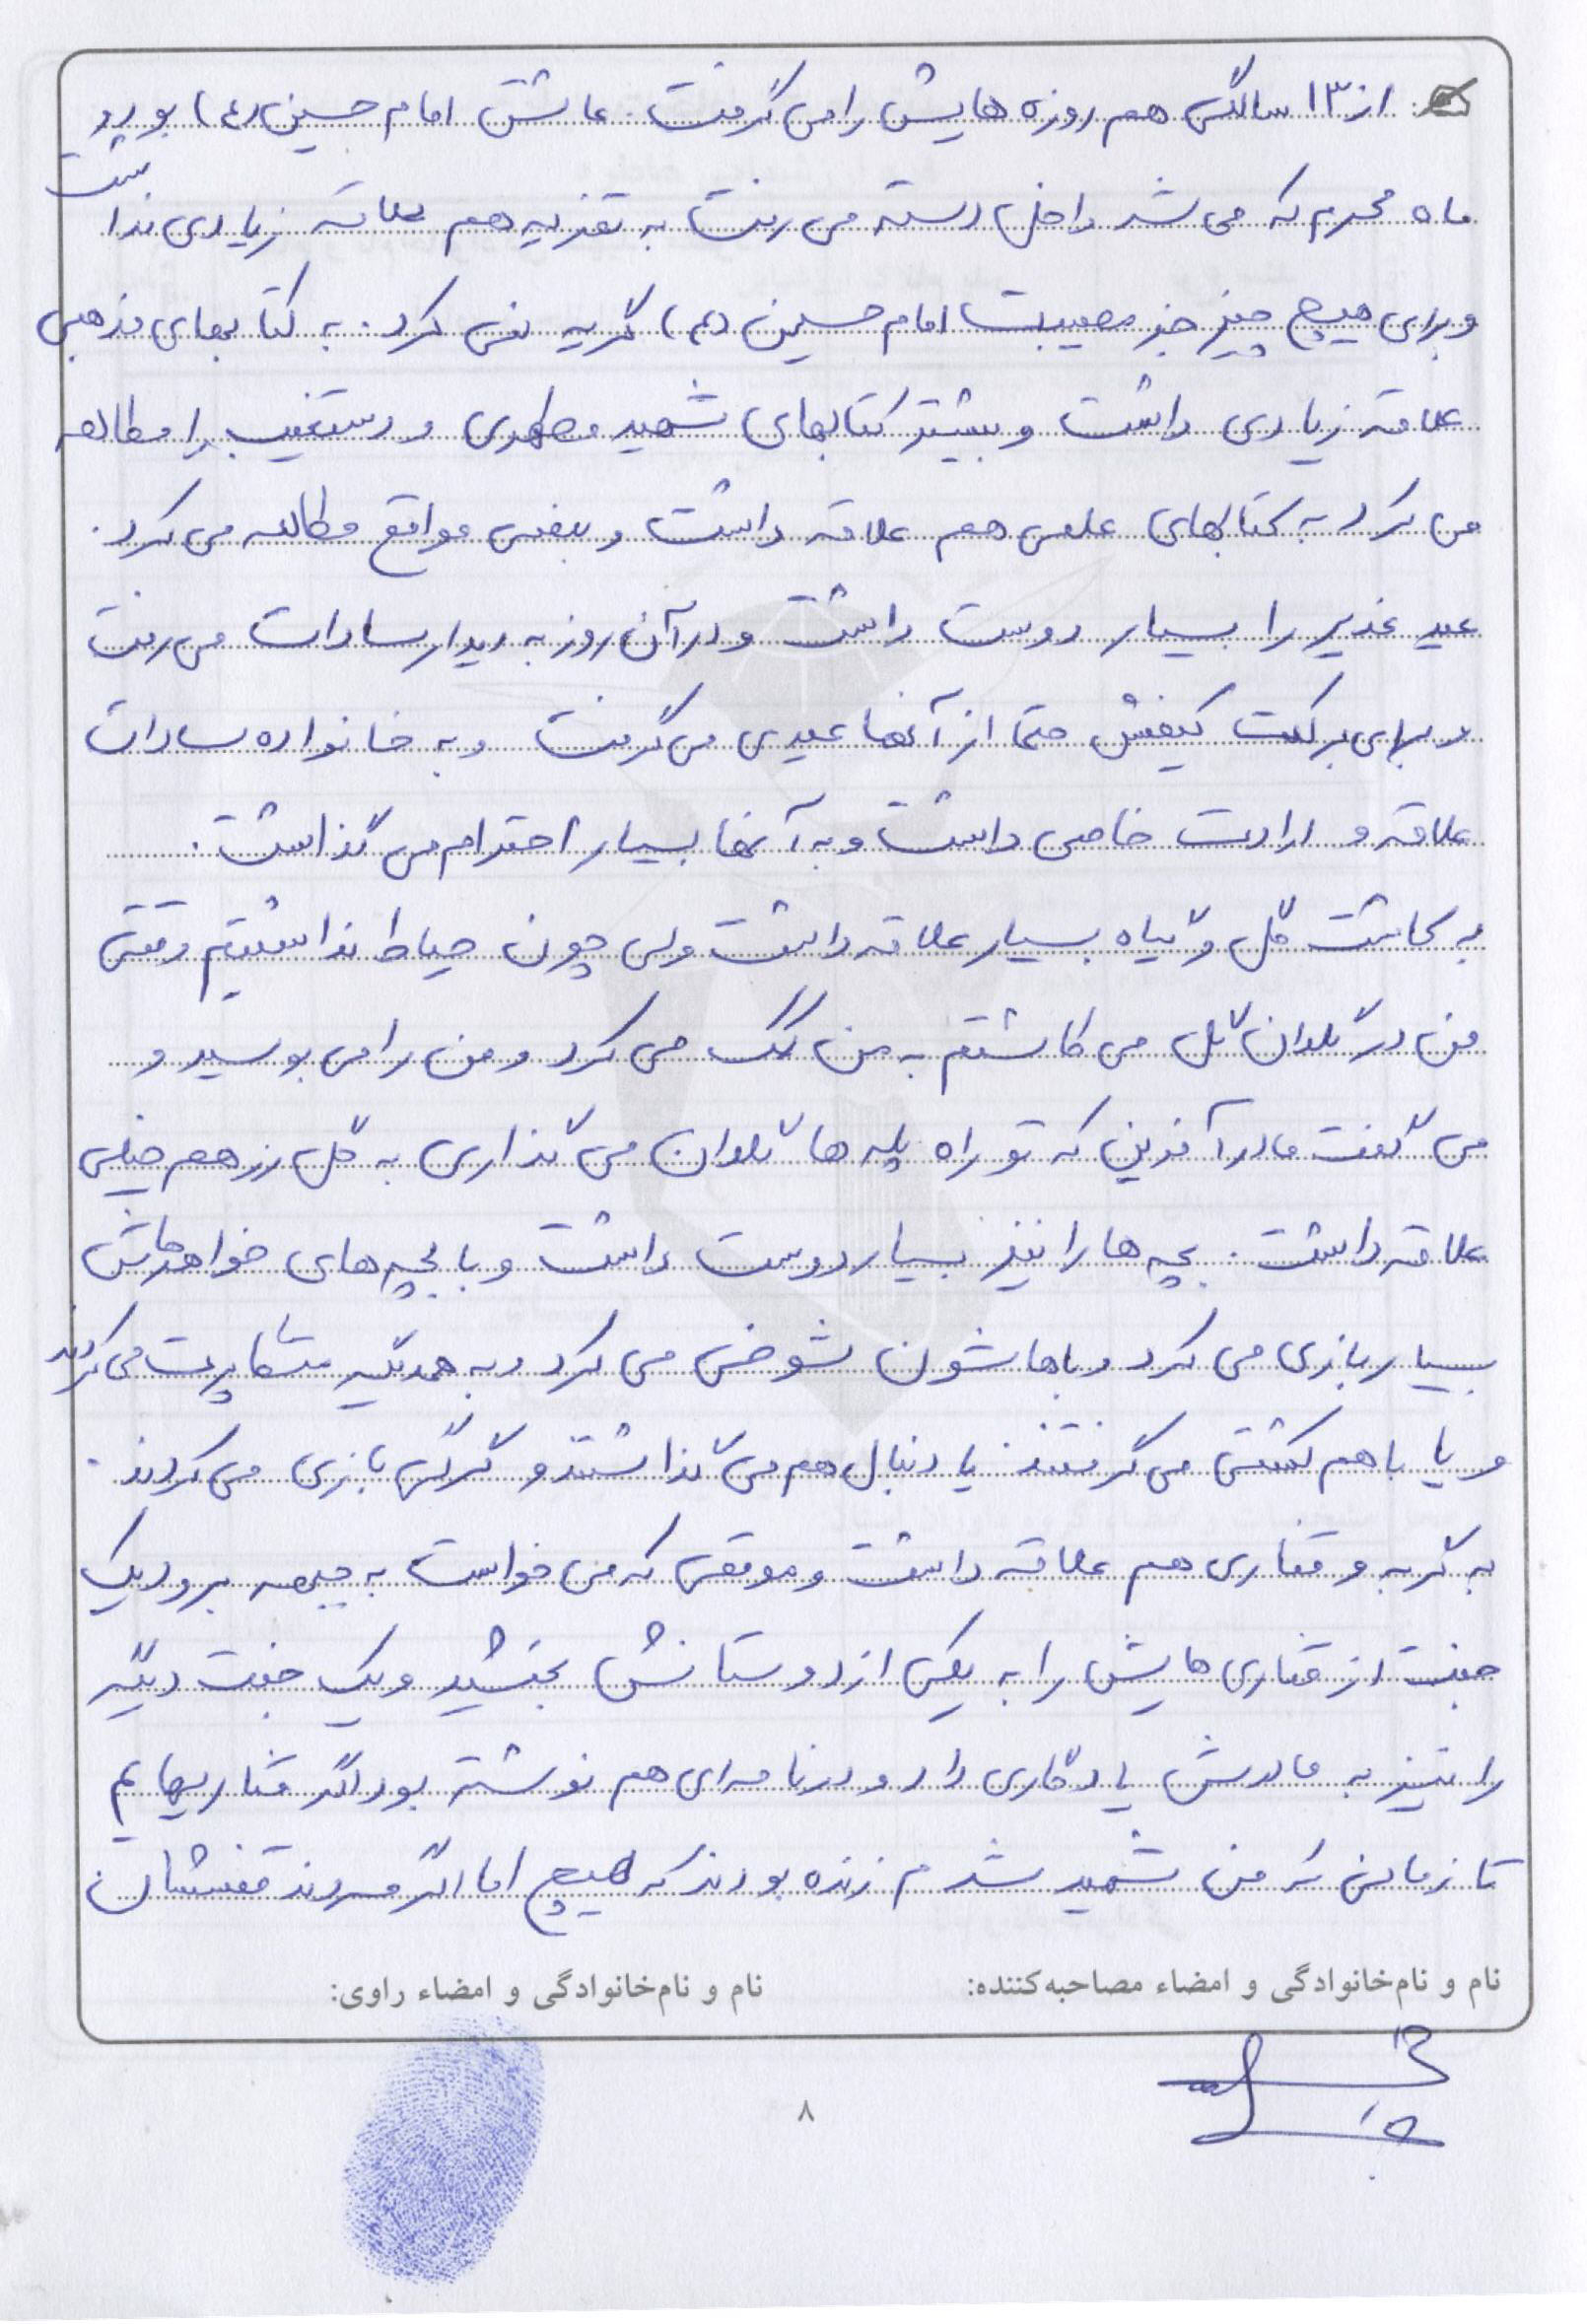 از ۱۳ سالگی هم روزه هایش را می گرفت. عاشق امام حسین (ع) بود و
ماه محرم که می شد داخل دسته می رفت به تعزیه هم علاقه زیادی نداشت
و برای هیچ چیز جز مصیبت امام حسین (ع) گریه نمی کرد. به کتابهای مذهبی
علاقه زیادی داشت و بیشتر کتابهای شهید مطهری و دستغیب را مطالعه
می کرد به کتابهای علمی هم علاقه داشت و بعضی مواقع مطالعه می کرد.
عید غدیر را بسیار دوست داشت و در آن روز به دیدار سادات می رفت
و برای برکت کیفش حتما از آنها عیدی می گرفت و به خانواده سادات
علاقه و ارادت خاصی داشت و به آنها بسیار احترام می گذاشت.
به کاشت گل و گیاه بسیار علاقه داشت ولی چون حیاط نداشتیم وقتی
من در گلدان گل می کاشتم به من کمک می کرد و من را می بوسید و
می گفت مادر آفرین که تو راه پله ها گلدان می گذاری به گل رز هم خیلی
علاقه داشت. بچه ها را نیز بسیار دوست داشت و با بچه های خواهرهاش
بسیار بازی می کرد و باهاشون شوخی می کرد و به همدیگر متکا پرت می کردند
و یا با هم کشتی می گرفتند یا دنبال هم می گذاشتند و گرگی بازی می کردند.
به گربه و قناری هم علاقه داشت و موقعی که می خواست به جبهه برود یک
جفت از قناری هایش را به یکی از دوستانش بخشید و یک جفت دیگر
را نیز به مادرش یادگاری داد و در نامه ای هم نوشته بود اگر قناریهایم
تا زمانی که من شهید شدم زنده بودند که هیچ اما اگر مردند قفسشان
نام و نام‌خانوادگی و امضاء مصاحبه‌کننده:
نام و نام‌خانوادگی و امضاء راوی:
۸